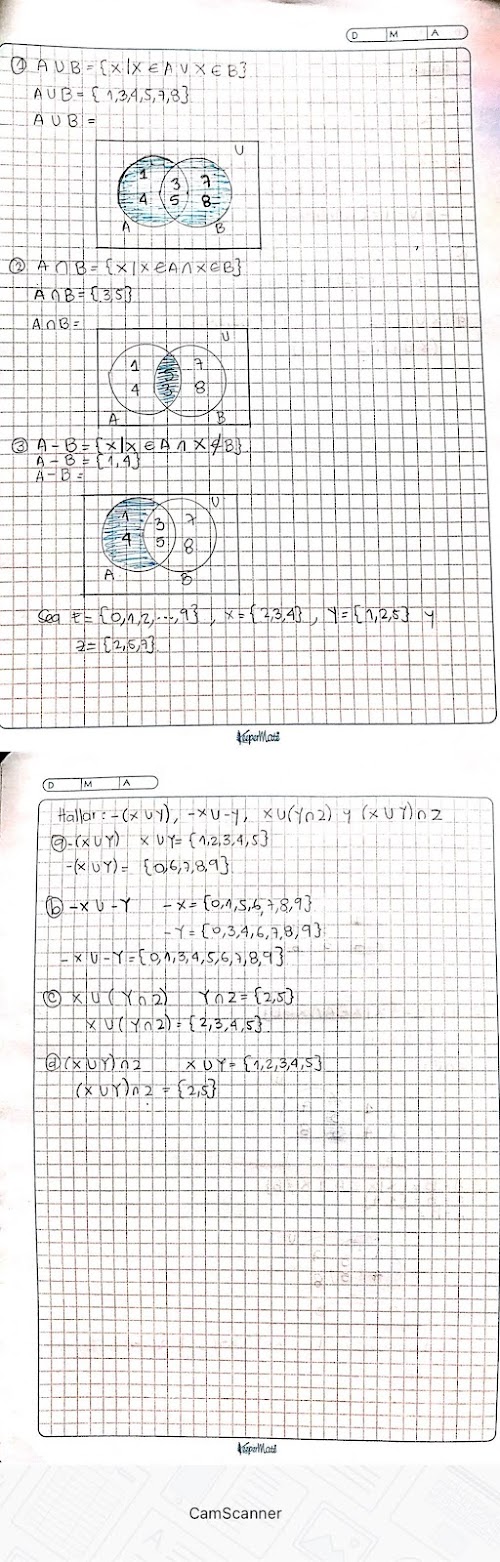 D M A
① A∪B = {x|x∈A ∨ x∈B}
A∪B = {1,3,4,5,7,8}
A∪B =
U
1 3 7
4 5 8
A B
② A∩B = {x|x∈A ∧ x∈B}
A∩B = {3,5}
A∩B =
U
1 5 7
4 3 8
A B
③ A-B = {x|x∈A ∧ x∉B}
A-B = {1,4}
A-B =
U
1 3 7
4 5 8
A B
Sea E = {0,1,2,...,9}, x = {2,3,4}, Y = {1,2,5} y
z = {2,5,7}
SuperMati
D M A
Hallar: -(x∪Y), -x∪-y, x∪(Y∩z) y (x∪Y)∩z
ⓐ -(x∪Y) x∪Y = {1,2,3,4,5}
-(x∪Y) = {0,6,7,8,9}
ⓑ -x∪-Y -x = {0,1,5,6,7,8,9}
-Y = {0,3,4,6,7,8,9}
-x∪-Y = {0,1,3,4,5,6,7,8,9}
ⓒ x∪(Y∩z) Y∩z = {2,5}
x∪(Y∩z) = {2,3,4,5}
ⓓ (x∪Y)∩z x∪Y = {1,2,3,4,5}
(x∪Y)∩z = {2,5}
SuperMati
CamScanner